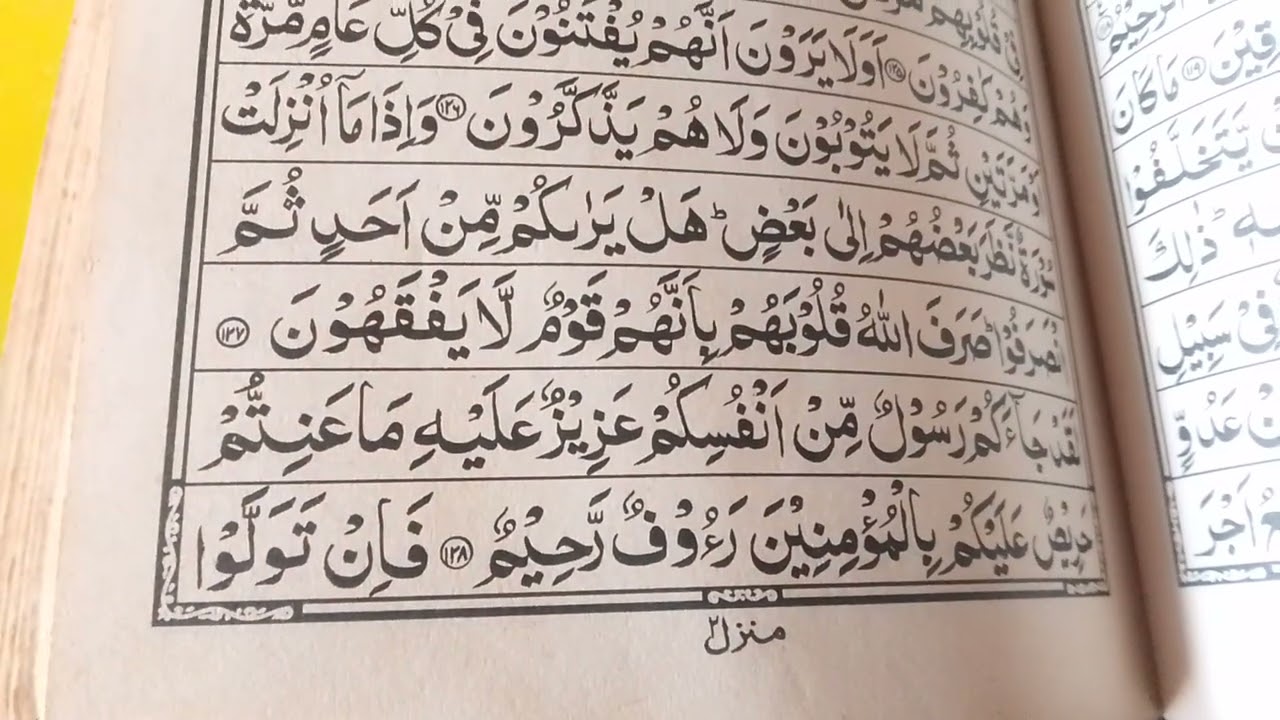 فِىْ قُلُوْبِهِمْ
وَهُمْ كٰفِرُوْنَ ۝۱۲۵ اَوَلَا يَرَوْنَ اَنَّهُمْ يُفْتَنُوْنَ فِىْ كُلِّ عَامٍ مَّرَّةً
اَوْ مَرَّتَيْنِ ثُمَّ لَا يَتُوْبُوْنَ وَلَا هُمْ يَذَّكَّرُوْنَ ۝۱۲۶ وَاِذَا مَاۤ اُنْزِلَتْ
سُوْرَةٌ نَّظَرَ بَعْضُهُمْ اِلٰى بَعْضٍ ؕ هَلْ يَرٰىكُمْ مِّنْ اَحَدٍ ثُمَّ
انْصَرَفُوْا ؕ صَرَفَ اللّٰهُ قُلُوْبَهُمْ بِاَنَّهُمْ قَوْمٌ لَّا يَفْقَهُوْنَ ۝۱۲۷
لَقَدْ جَآءَكُمْ رَسُوْلٌ مِّنْ اَنْفُسِكُمْ عَزِيْزٌ عَلَيْهِ مَا عَنِتُّمْ
حَرِيْصٌ عَلَيْكُمْ بِالْمُؤْمِنِيْنَ رَءُوْفٌ رَّحِيْمٌ ۝۱۲۸ فَاِنْ تَوَلَّوْا
منزل ۲
الرَّحِيْمُ
۝۱۱۹ مَا كَانَ
يَّتَخَلَّفُوْا
ذٰلِكَ
فِىْ سَبِيْلِ
عَدُوٍّ
اَجْرَ